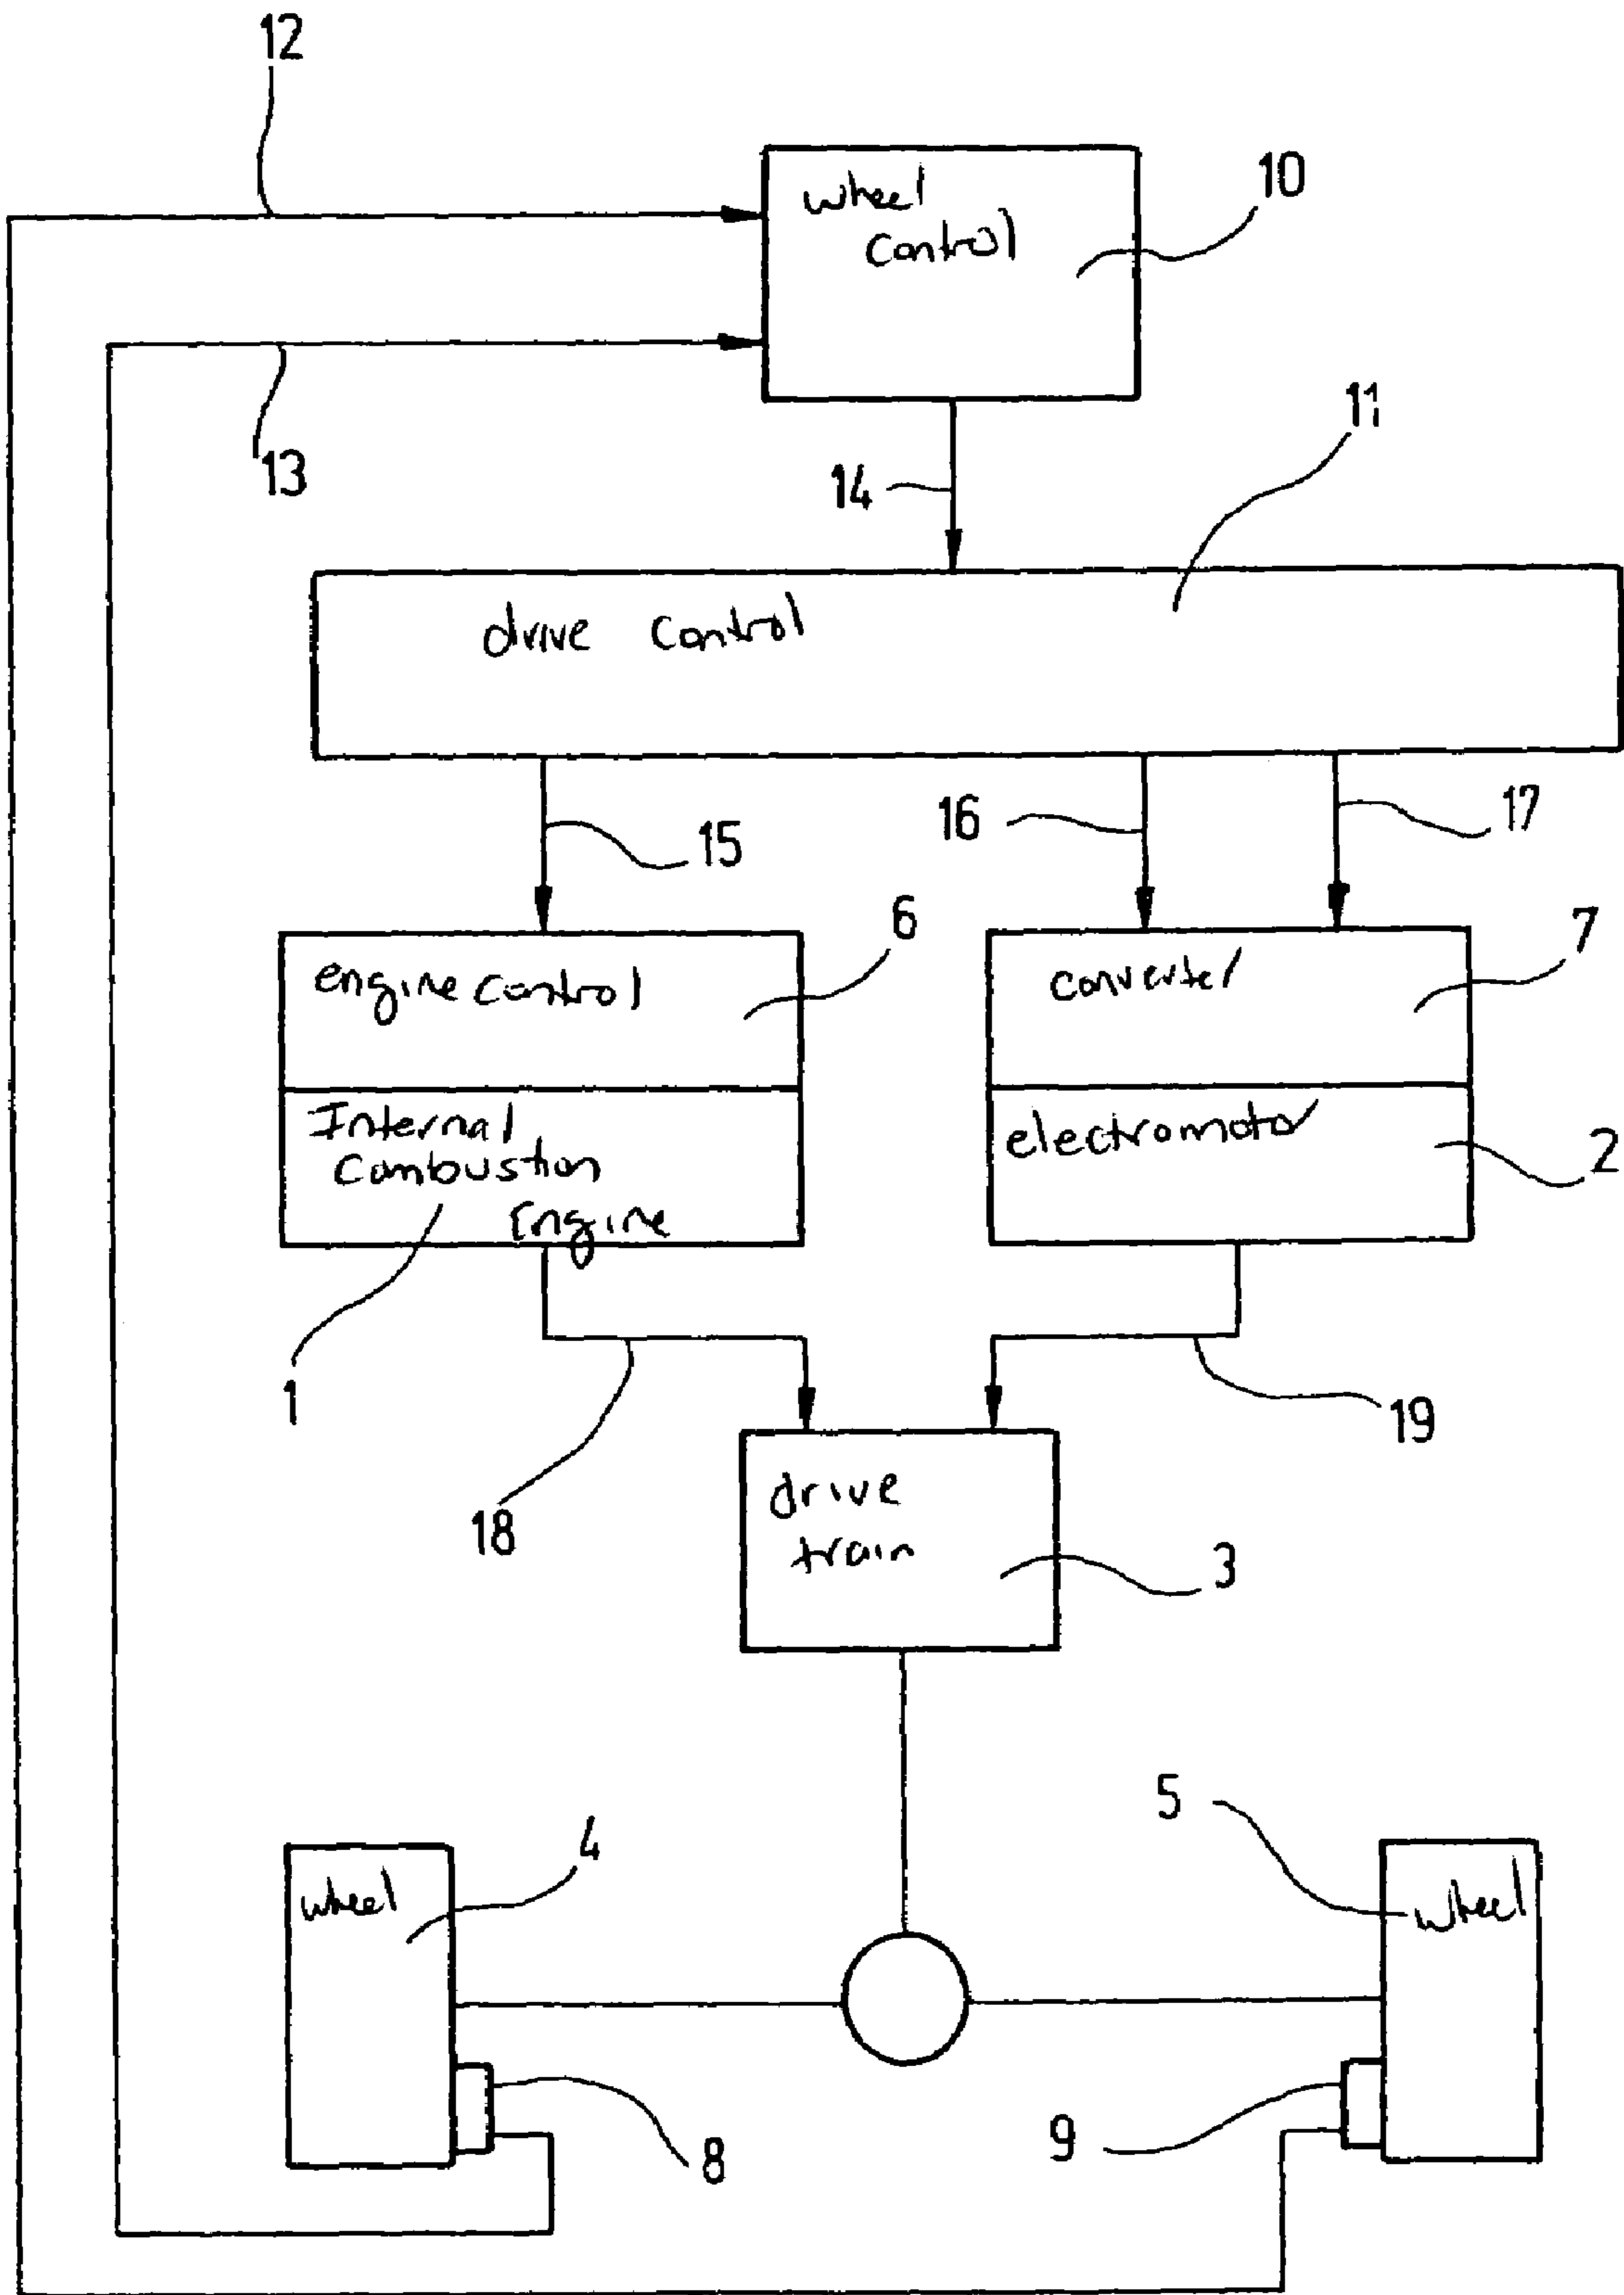 12
wheel
control
10
13
14
11
drive control
15
16
17
6
7
engine control
converter
Internal
Combustion
Engine
electromotor
2
1
18
19
drive
train
3
5
4
wheel
wheel
8
9